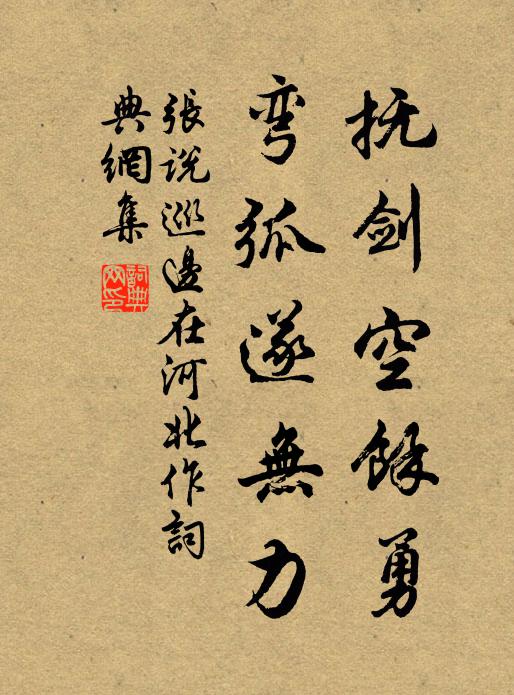 抚剑空馀勇
弯弧遂無力
張説巡邊在河北作詞
典網集
詞典
网印